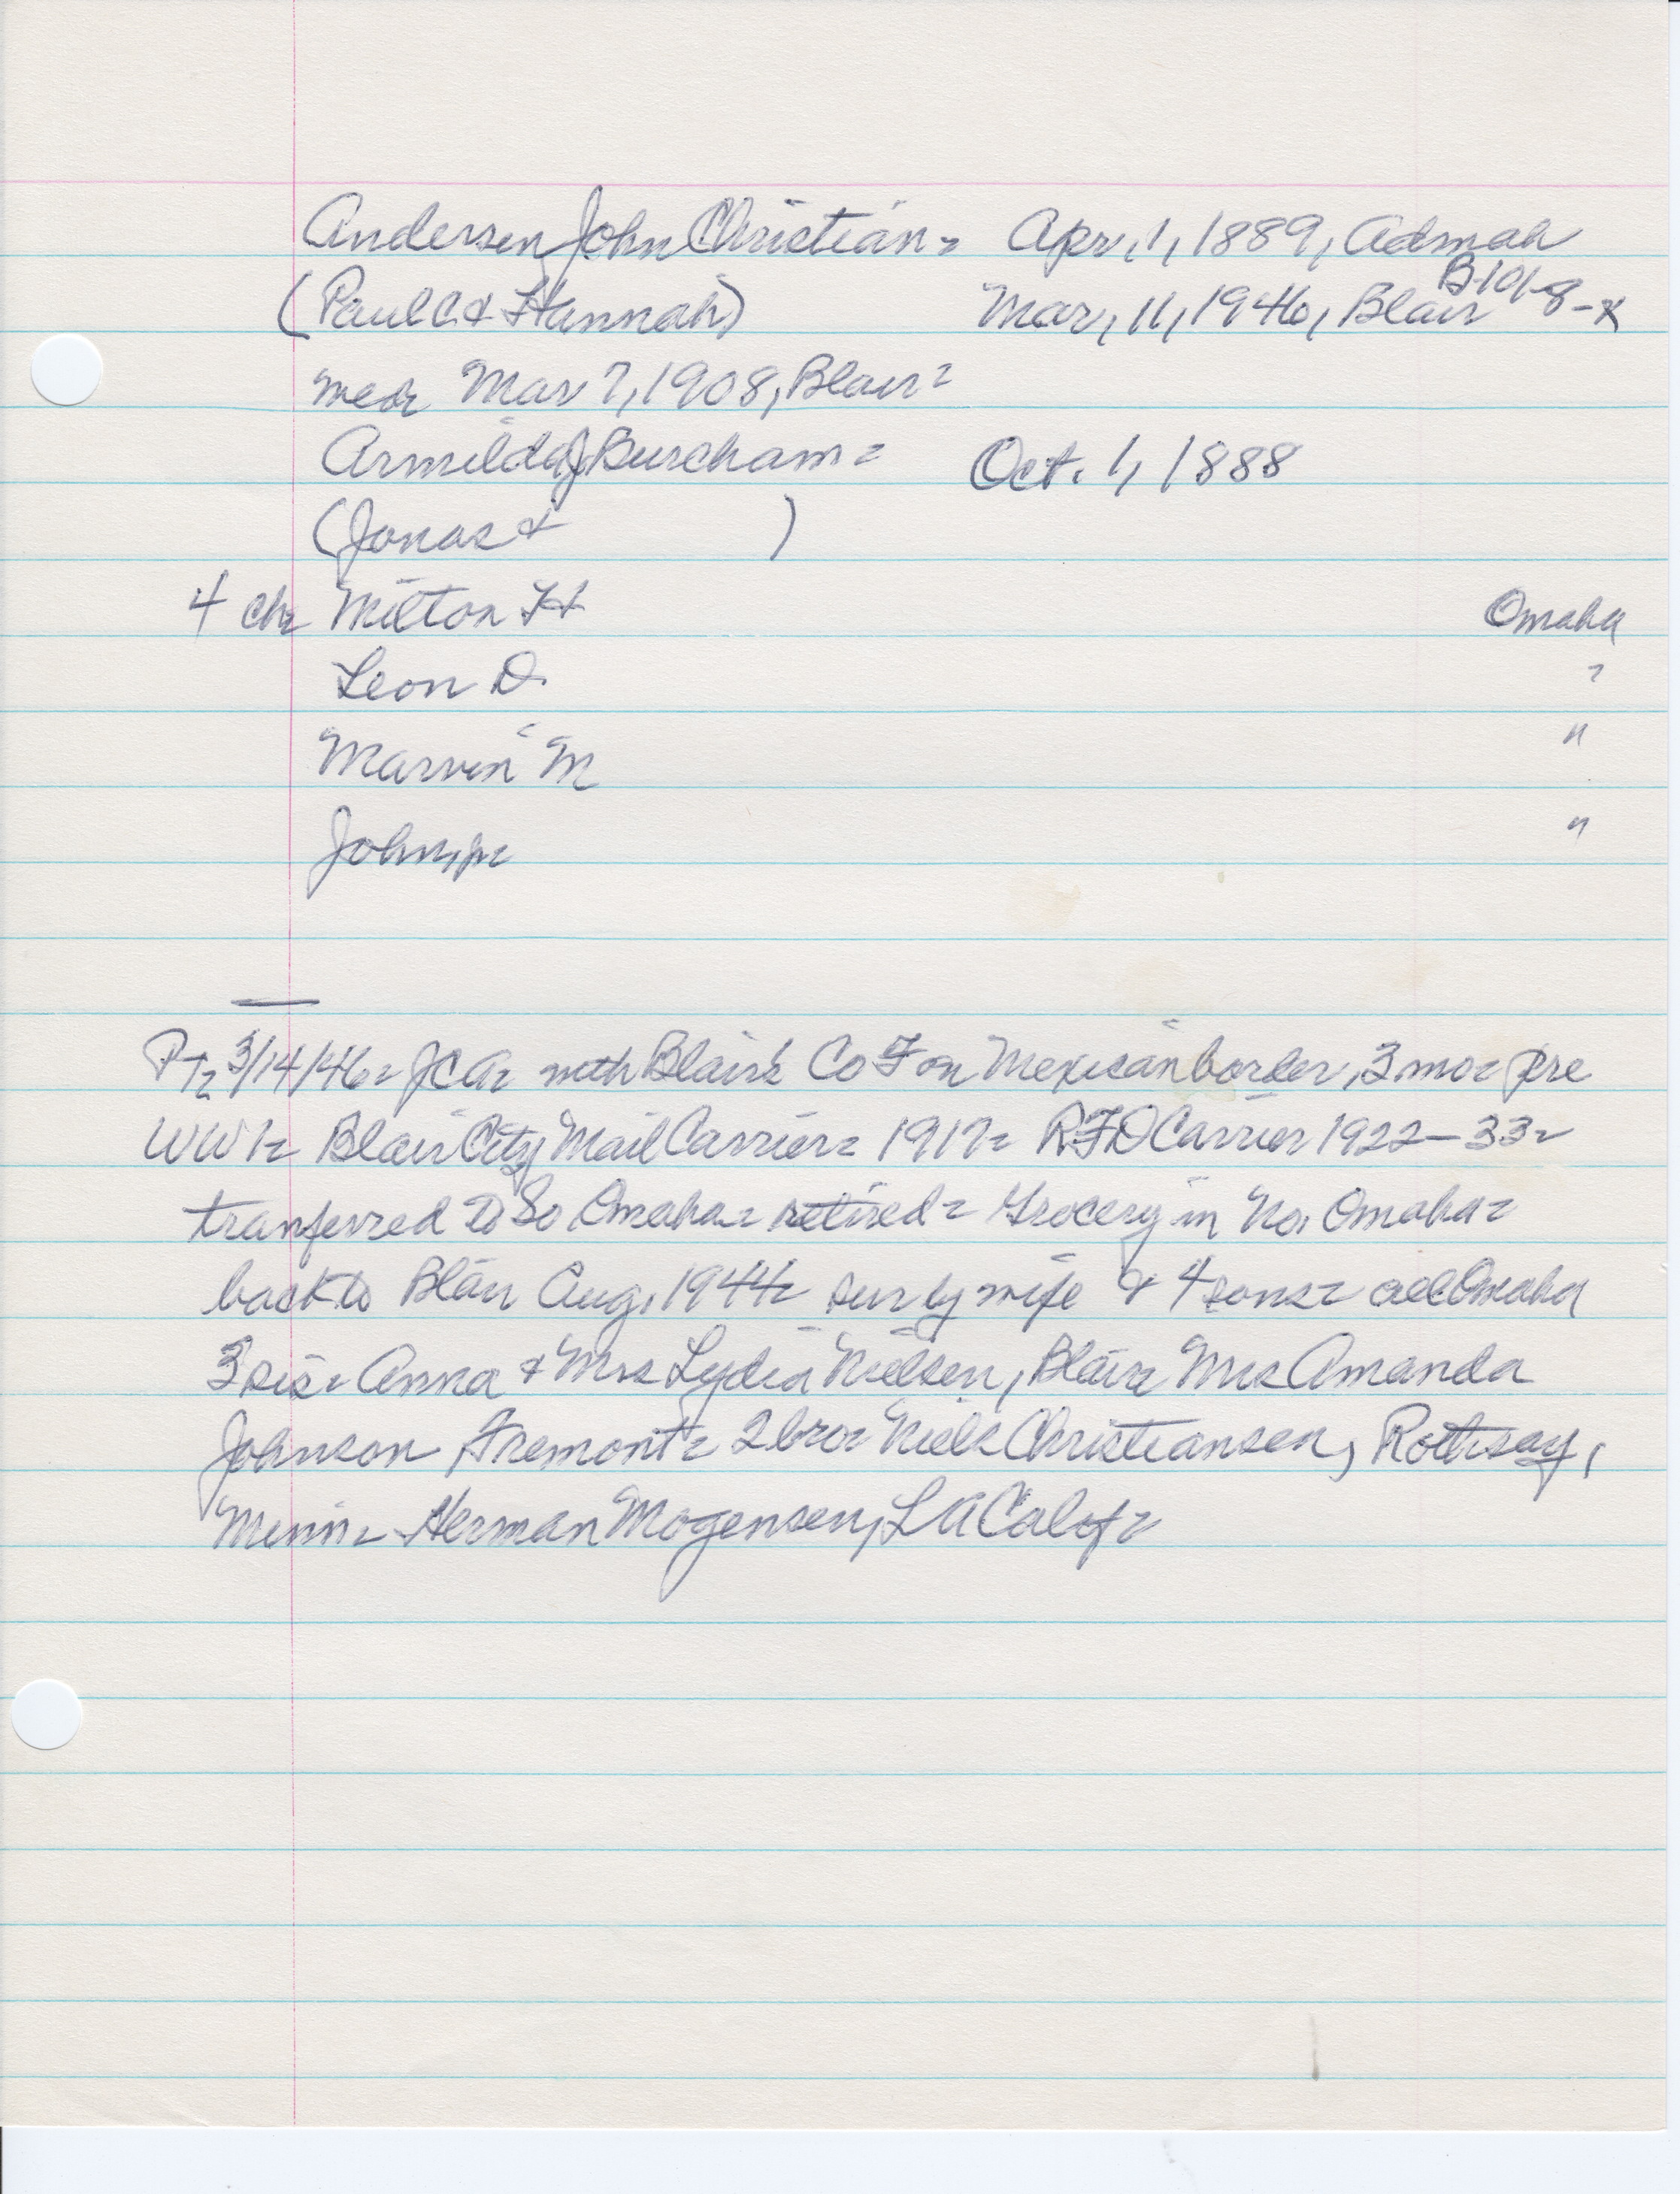 Andersen, John Christian = Apr. 1, 1889, Admah
(Paul C. & Hannah) Mar, 11, 1946, Blair B-101-8-x
med= Mar 7, 1908, Blair=
Armilda J Burcham = Oct. 1, 1888
(Jonas & )
4 ch= Milton H Omaha
Leon D. "
Marvin M "
John, jr= "
PT= 3/14/46= JCA= with Blair's Co F on Mexican border, 3 mo= pre
WW1= Blair City Mail Carrier= 1917= RFD Carrier 1922-33=
tranferred to So Omaha= retired= Grocery in No. Omaha=
back to Blair Aug, 1944= sur by wife & 4 sons= all Omaha
3 sis= Anna & Mrs Lydia Nielsen, Blair= Mrs Amanda
Johnson Fremont= 2 bro= Niels Christiansen, Rothsay,
Minn= Herman Mogensen, LA Calif=